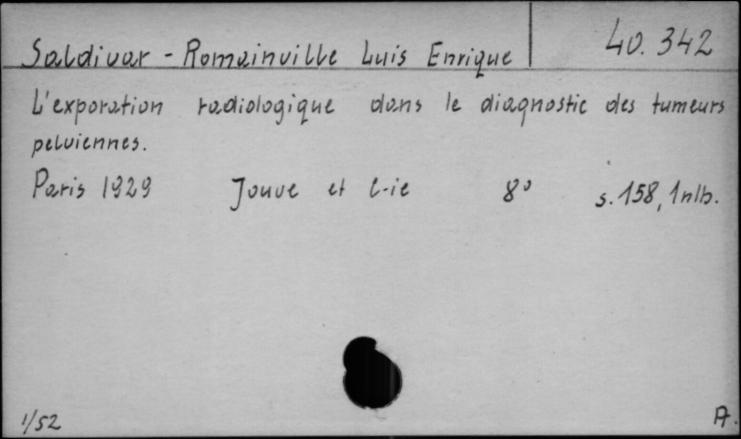 Saldivar - Romainville Luis Enrique 40.342
L'exporation radiologique dans le diagnostic des tumeurs
pelviennes.
Paris 1929 Jouve et C-ie 8° s. 158, 1 nlb.
1/52 A.